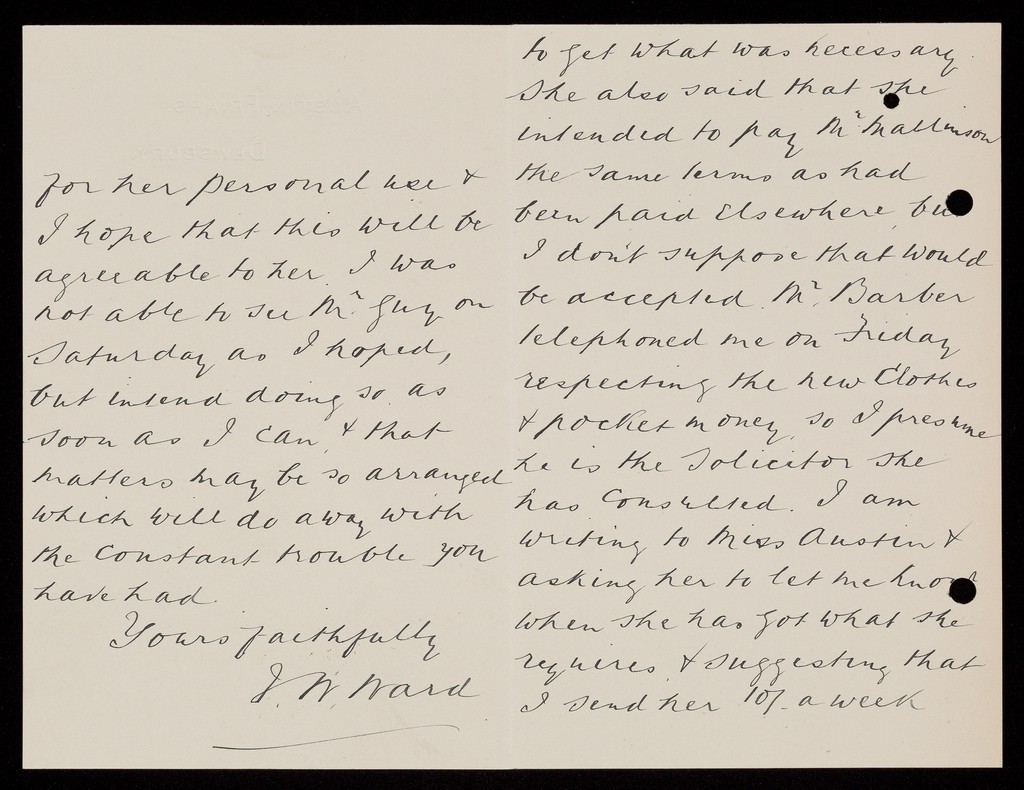 to get what was necessary.
She also said that she
intended to pay Mr. Mallinson
the same terms as had
been paid Elsewhere, but
I don't suppose that would
be accepted. Mr. Barber
telephoned me on Friday
respecting the new Clothes
& pocket money, so I presume
he is the Solicitor she
has Consulted. I am
writing to Miss Austin &
asking her to let me know
when she has got what she
requires, & suggesting that
I send her 10/- a week
for her personal use &
I hope that this will be
agreeable to her. I was
not able to see Mr. Guy on
Saturday as I hoped,
but intend doing so as
soon as I can, & that
matters may be so arranged
which will do away with
the Constant trouble you
have had.
Yours faithfully
J. W. Ward